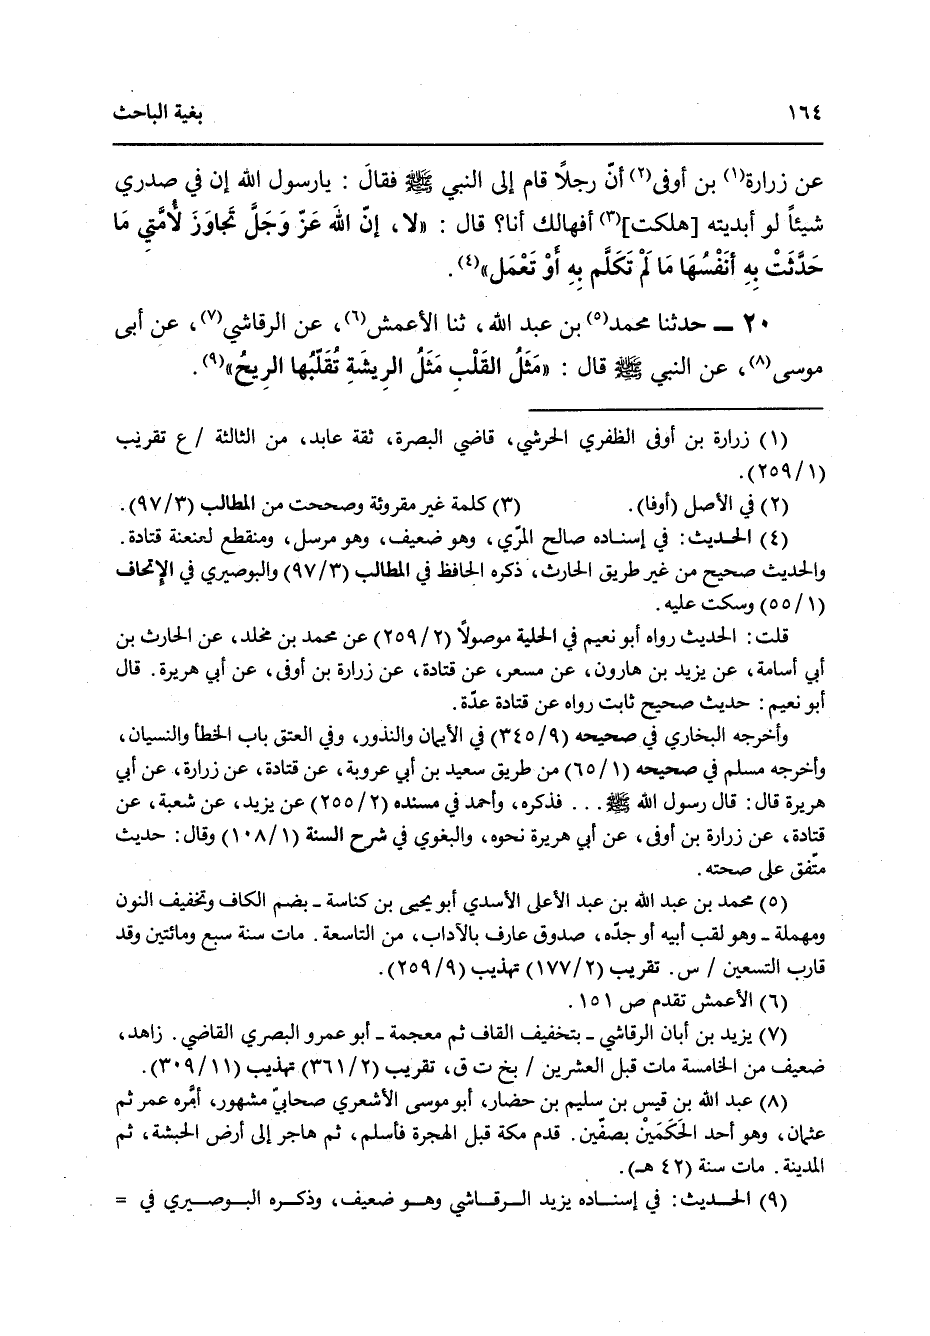 ١٦٤ بغية الباحث
عن زرارة(١) بن أوفى(٢) أنّ رجلاً قام إلى النبي ﷺ فقالَ : يارسول الله إن في صدري
شيئاً لو أبديته [هلكت](٣) أفهالك أنا؟ قال : «لا، إنّ اللهَ عَزّ وَجَلَّ تَجاوَزَ لأُمَّتِي مَا
حَدَّثَتْ بِهِ أَنَفْسُهَا مَا لَمْ تَكَلَّم بِهِ أَوْ تَعْمَل»(٤) .
٢٠ ـ حدثنا محمد(٥) بن عبد الله، ثنا الأعمش(٦)، عن الرقاشي(٧)، عن أبى
موسى(٨)، عن النبي ﷺ قال : «مَثَلُ القَلْبِ مَثَلُ الرِيشَةِ تُقَلِّبُها الرِيحُ»(٩) .
(١) زرارة بن أوفى الظفري الحرشي، قاضي البصرة، ثقة عابد، من الثالثة /ع تقريب
(٢٥٩/١).
(٢) في الأصل (أوفا). (٣) كلمة غير مقروئة وصححت من المطالب (٩٧/٣).
(٤) الحديث: في إسناده صالح المرّي، وهو ضعيف، وهو مرسل، ومنقطع لعنعنة قتادة.
والحديث صحيح من غير طريق الحارث، ذكره الحافظ في المطالب (٩٧/٣) والبوصيري في الإتحاف
(٥٥/١) وسكت عليه.
قلت: الحديث رواه أبو نعيم في الحلية موصولاً (٢٥٩/٢) عن محمد بن مخلد، عن الحارث بن
أبي أسامة، عن يزيد بن هارون، عن مسعر، عن قتادة، عن زرارة بن أوفى، عن أبي هريرة. قال
أبو نعيم: حديث صحيح ثابت رواه عن قتادة عدّة.
وأخرجه البخاري في صحيحه (٣٤٥/٩) في الأيمان والنذور، وفي العتق باب الخطأ والنسيان،
وأخرجه مسلم في صحيحه (٦٥/١) من طريق سعيد بن أبي عروبة، عن قتادة، عن زرارة، عن أبي
هريرة قال: قال رسول الله ﷺ ... فذكره، وأحمد في مسنده (٢٥٥/٢) عن يزيد، عن شعبة، عن
قتادة، عن زرارة بن أوفى، عن أبي هريرة نحوه، والبغوي في شرح السنة (١٠٨/١) وقال: حديث
متّفق على صحته.
(٥) محمد بن عبد الله بن عبد الأعلى الأسدي أبو يحيى بن كناسة ـ بضم الكاف وتخفيف النون
ومهملة ـ وهو لقب أبيه أو جدّه، صدوق عارف بالآداب، من التاسعة. مات سنة سبع ومائتين وقد
قارب التسعين / س. تقريب (١٧٧/٢) تهذيب (٢٥٩/٩).
(٦) الأعمش تقدم ص ١٥١.
(٧) يزيد بن أبان الرقاشي ـ بتخفيف القاف ثم معجمة ـ أبو عمرو البصري القاضي. زاهد،
ضعيف من الخامسة مات قبل العشرين / بخ ت ق، تقريب (٣٦١/٢) تهذيب (٣٠٩/١١).
(٨) عبد الله بن قيس بن سليم بن حضار، أبو موسى الأشعري صحابيّ مشهور، أمَّره عمر ثم
عثمان، وهو أحد الحَكَمَيْنْ بصفّين. قدم مكة قبل الهجرة فأسلم، ثم هاجر إلى أرض الحبشة، ثم
المدينة. مات سنة (٤٢ هـ).
(٩) الحديث: في إسناده يزيد الرقاشي وهو ضعيف، وذكره البوصيري في =